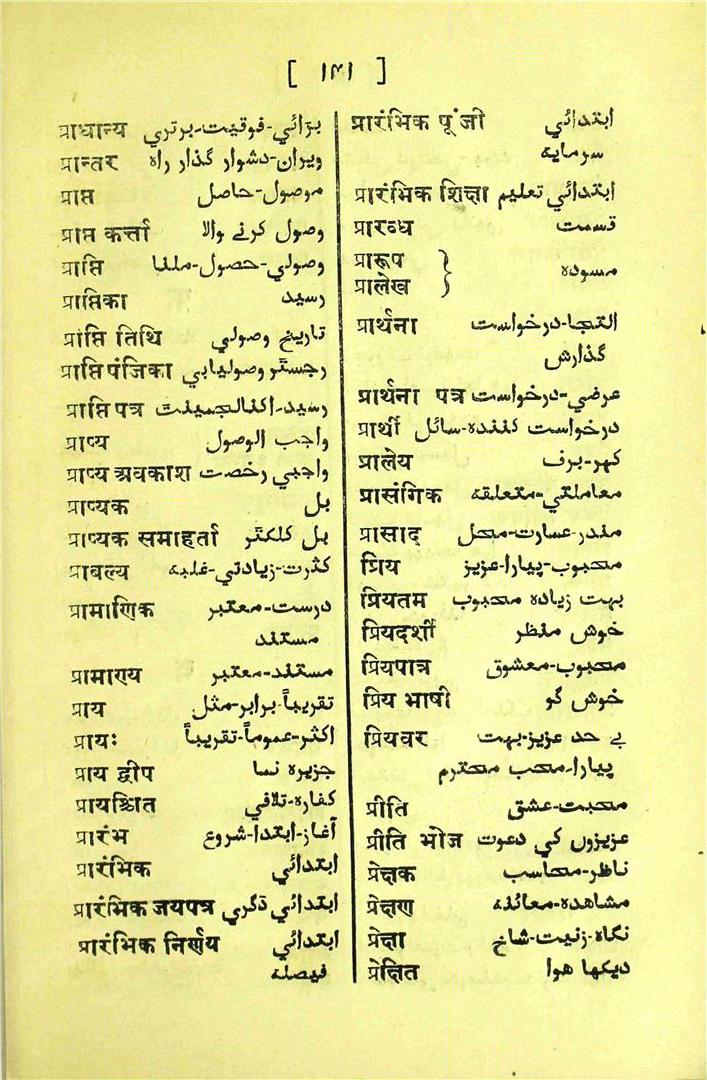 [ ۱۷۱ ]
प्राधान्य بڑائي-فوقیت-برتري
प्रान्तर ویران-دشوار گذار راہ
प्राप्त موصول-حاصل
प्राप्त कर्त्ता وصول کرنے والا
प्राप्ति وصولي-حصول-ملنا
प्राप्तिका رسید
प्राप्ति तिथि تاریخ وصولي
प्राप्ति पंजिका رجسٹر وصولیابي
प्राप्ति पत्र رسید-اکنالجمینٹ
प्राप्य واجب الوصول
प्राप्य अवकाश واجبي رخصت
प्राप्यक بل
प्राप्यक समाहर्ता بل کلکٹر
प्राबल्य کثرت-زیادتي-غلبہ
प्रामाणिक درست-معتبر
مستند
प्रामाण्य مستند-معتبر
प्राय تقریباً-برابر-مثل
प्रायः اکثر-عموماً-تقریباً
प्राय द्वीप جزیرہ نما
प्रायश्चित کفارہ-تلافي
प्रारंभ آغاز-ابتدا-شروع
प्रारंभिक ابتدائي
प्रारंभिक जयपत्र ابتدائي ڈگري
प्रारंभिक निर्णय ابتدائي
فیصلہ
प्रारंभिक पूंजी ابتدائي
سرمایہ
प्रारंभिक शिक्षा ابتدائي تعلیم
प्रारब्ध قسمت
प्रारूप
प्रालेख } مسودہ
प्रार्थना التجا-درخواست
گذارش
प्रार्थना पत्र عرضي-درخواست
प्रार्थी درخواست کنندہ-سائل
प्रालेय کہر-برف
प्रासंगिक معاملتي-متعلقہ
प्रासाद مندر-عمارت-محل
प्रिय محبوب-پیارا-عزیز
प्रियतम بہت زیادہ محبوب
प्रियदर्शी خوش منظر
प्रियपात्र محبوب-معشوق
प्रिय भाषी خوش گو
प्रियवर بے حد عزیز-بہت
پیارا-محب محترم
प्रीति محبت-عشق
प्रीति भोज عزیزوں کي دعوت
प्रेक्षक ناظر-محاسب
प्रेक्षण مشاهدہ-معائنہ
प्रेक्षा نگاہ-زنیت-شاخ
प्रेक्षित دیکھا ہوا